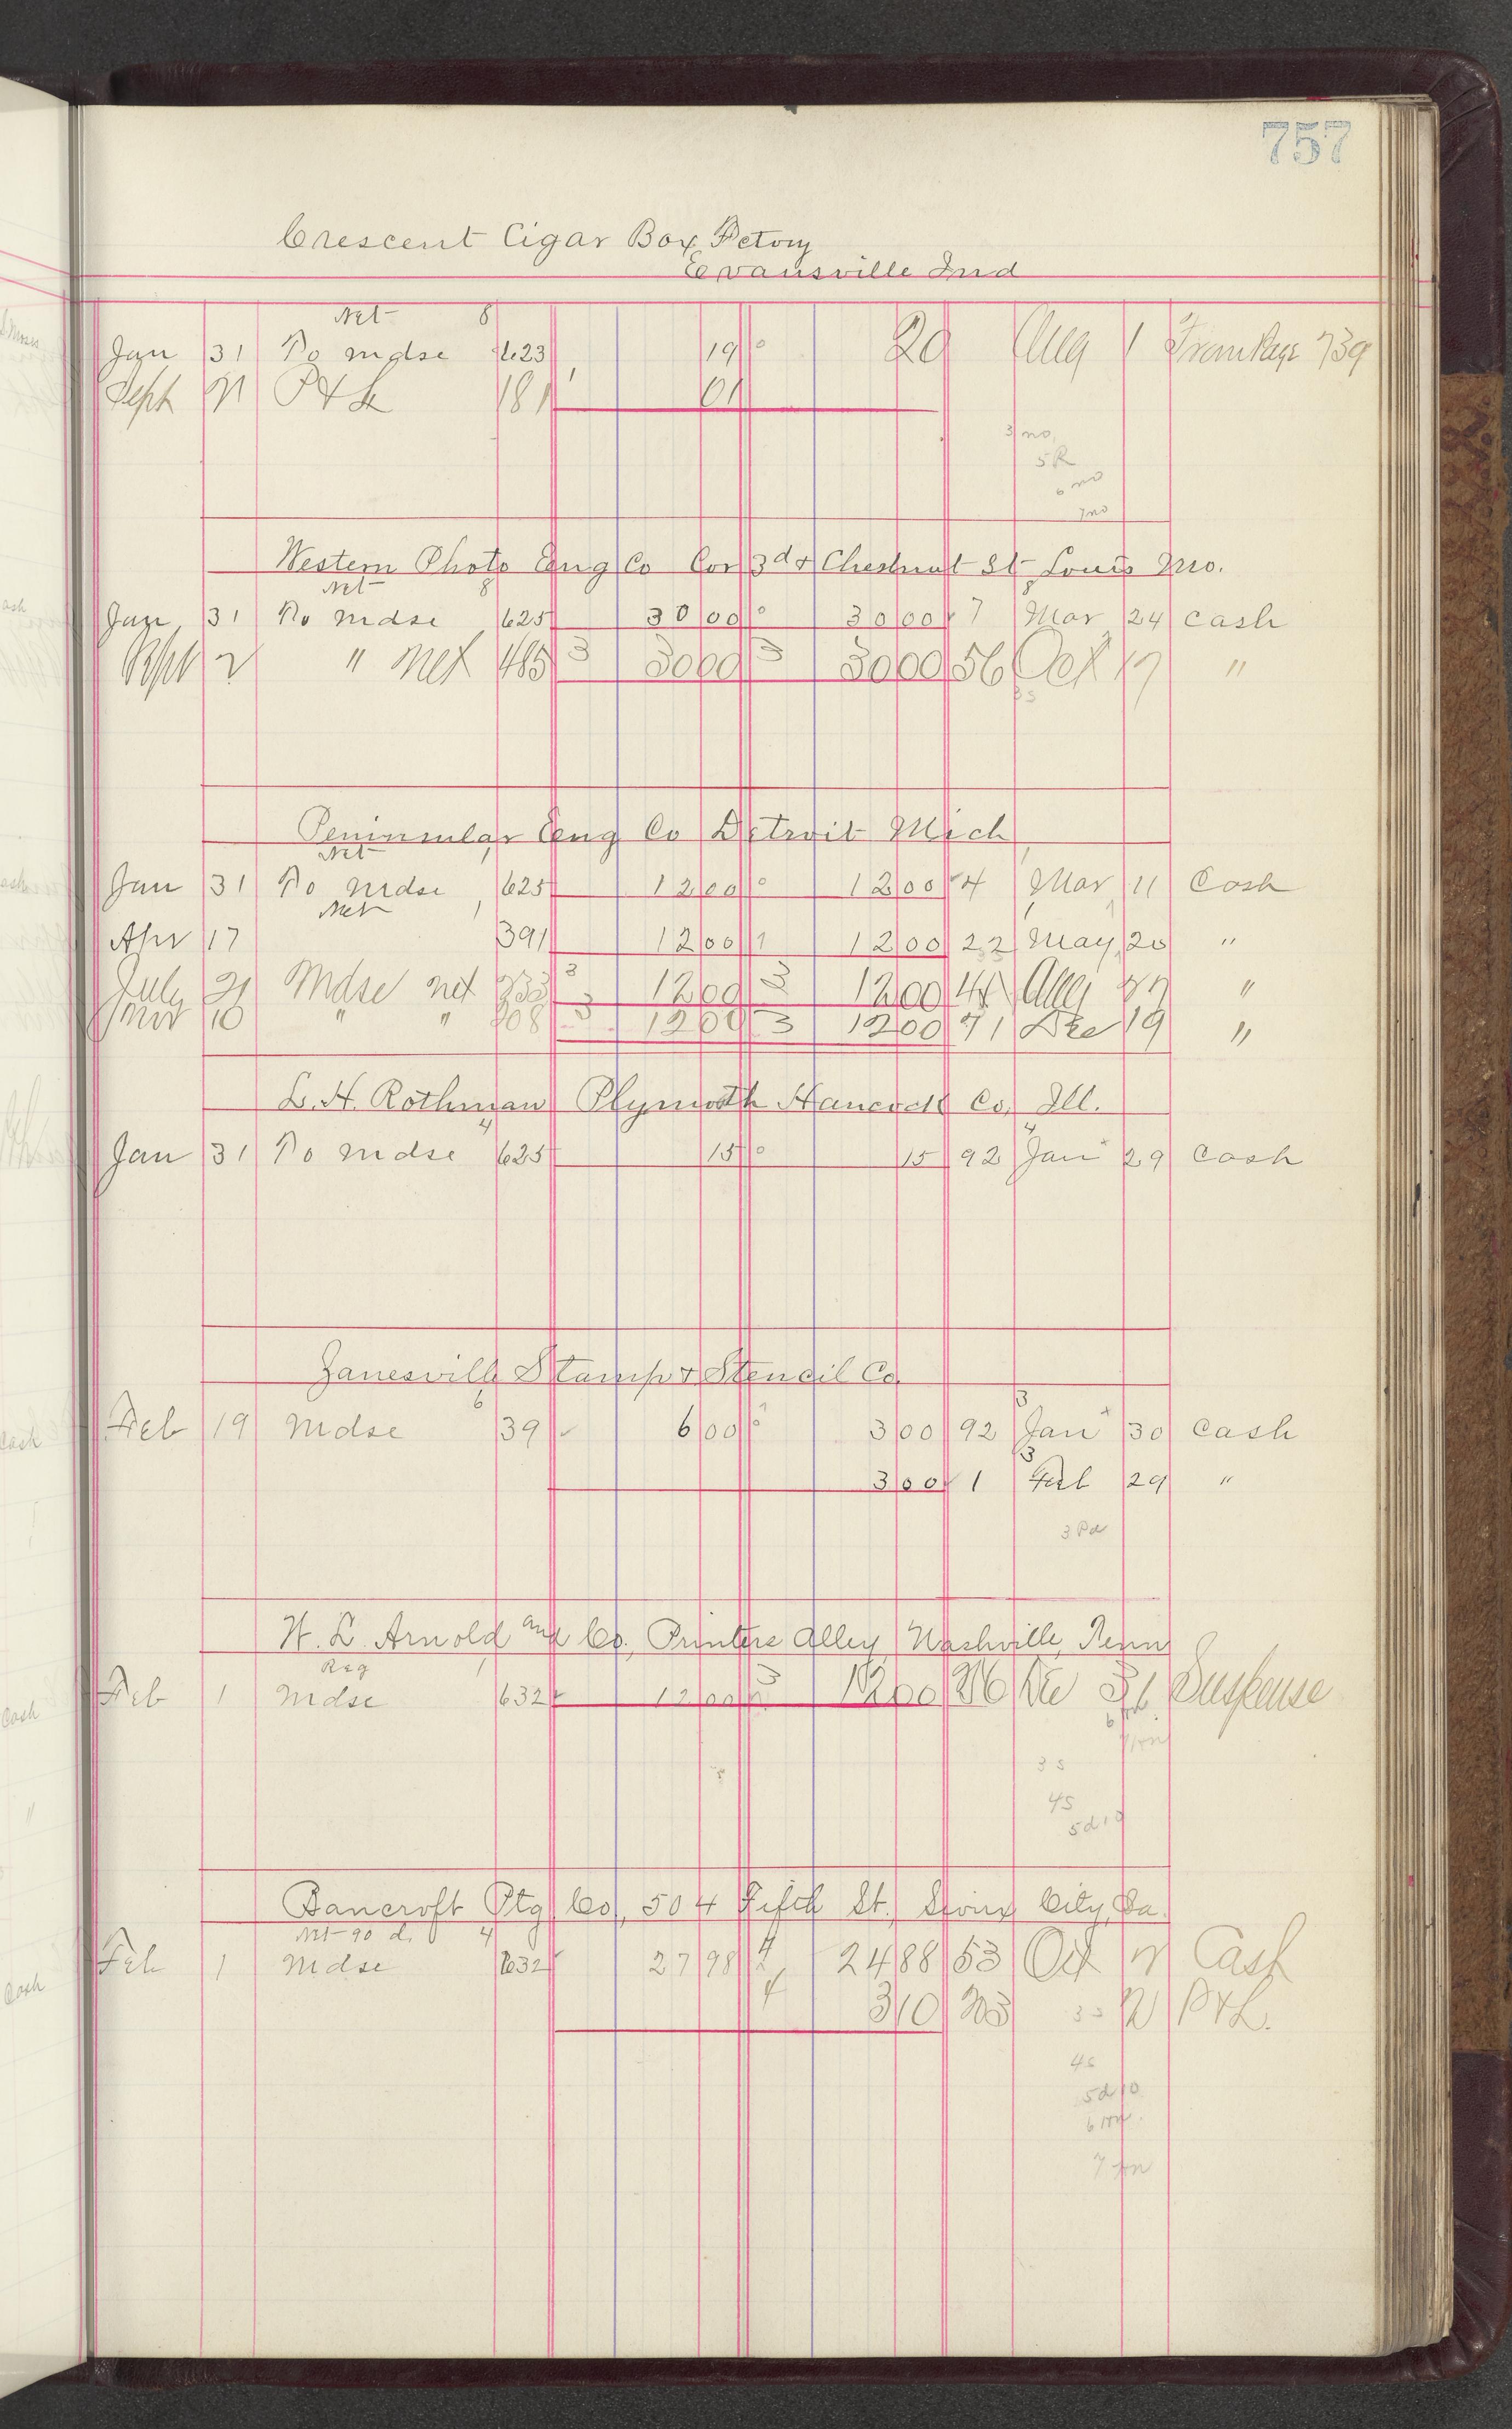 757
Crescent Cigar Box Fctory
Evansville Ind
Net 8
Jan 31 To mdse 623 19 0 20 Aug 1 From Page 739
Sept P & L 181 1 01
3 mo,
5 R
6 mo
7 mo
Western Photo Eng Co Cor 3d & Chestnut St Louis Mo.
Net 8 8
Jan 31 To mdse 625 30 00 0 30 00 7 Mar 24 Cash
Sept 2 " net 485 3 30 00 3 30 00 56 Oct 17 "
3 s
Peninsular Eng Co Detroit Mich
Net 1
Jan 31 To mdse 625 12 00 0 12 00 4 Mar 11 Cash
Net 1 1
Apr 17 391 12 00 1 12 00 22 May 20 "
July 21 Mdse net 333 3 12 00 3 12 00 Aug "
Nov 10 " " 3 12 00 3 12 00 71 Dec 19 "
L. H. Rothman Plymouth Hancock Co, Ill.
4 4
Jan 31 To mdse 625 15 0 15 92 Jan 29 Cash
Janesville Stamp & Stencil Co
6 3
Feb 19 mdse 39 6 00 0 3 00 92 Jan 30 Cash
3
3 00 1 Feb 29 "
3 Pd
W. L. Arnold and Co, Printers Alley, Nashville, Tenn
Reg 1
Feb 1 mdse 632 12 00 3 12 00 Dec 31 Suspense
3 s
4 s
5 d 10
Bancroft Ptg Co, 504 Fifth St., Sioux City, Ia.
Net 90 d. 4
Feb 1 mdse 632 27 98 4 24 88 53 Oct Cash
4 3 10 P & L.
4 s
5 d 10